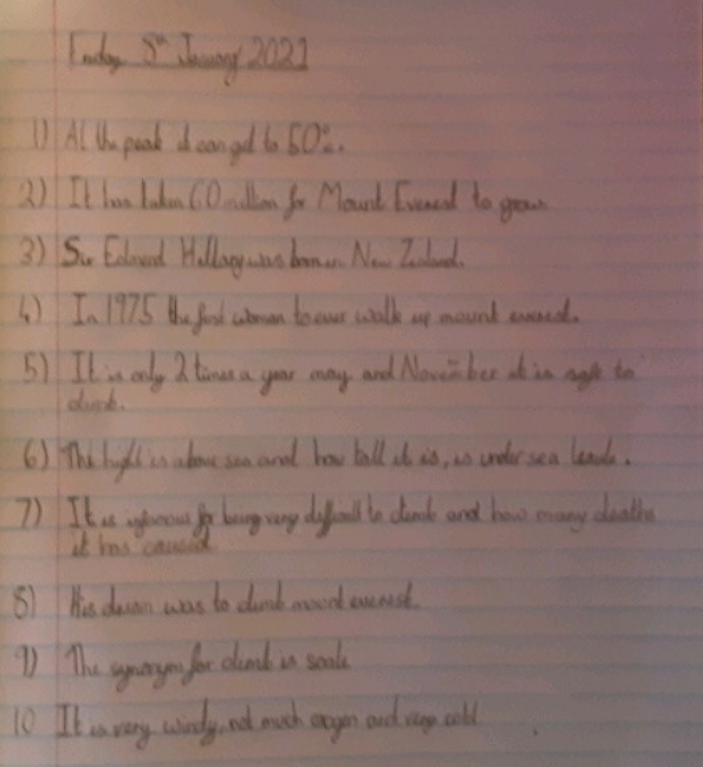 Friday 8th January 2021
1) At the peak it can get to 60%.
2) It has taken 60 million for Mount Everest to grow
3) Sir Edmund Hillary was born in New Zealand.
4) In 1975 the first woman to ever walk up mount everest.
5) It is only 2 times a year may and November it is safe to
climb.
6) The hight is above sea and how tall it is, is under sea
7) It is infamous for being very difficult to climb and how many deaths
it has caused
8) His was to climb mount everest.
9) The synonym for climb is scale
10 It is very windy, not much oxygen and very cold